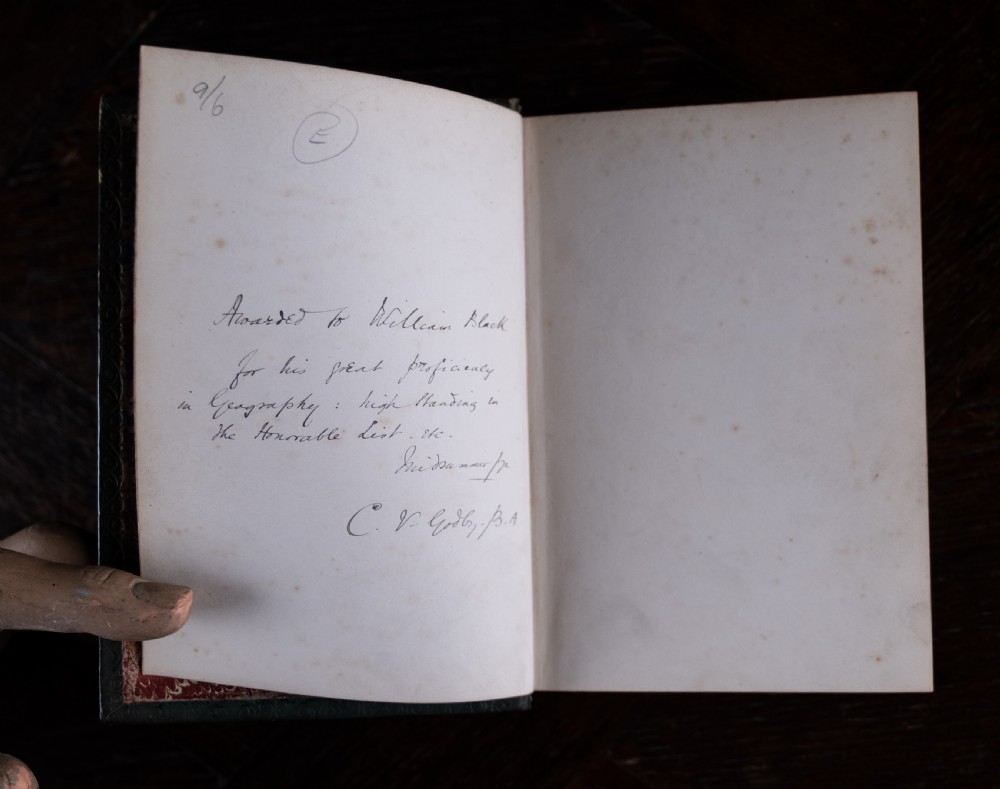 9/6
E
Awarded to William Black
for his great proficiency
in Geography : high standing in
the Honorable List . etc.
Midsummer
C. V. Godby, B.A